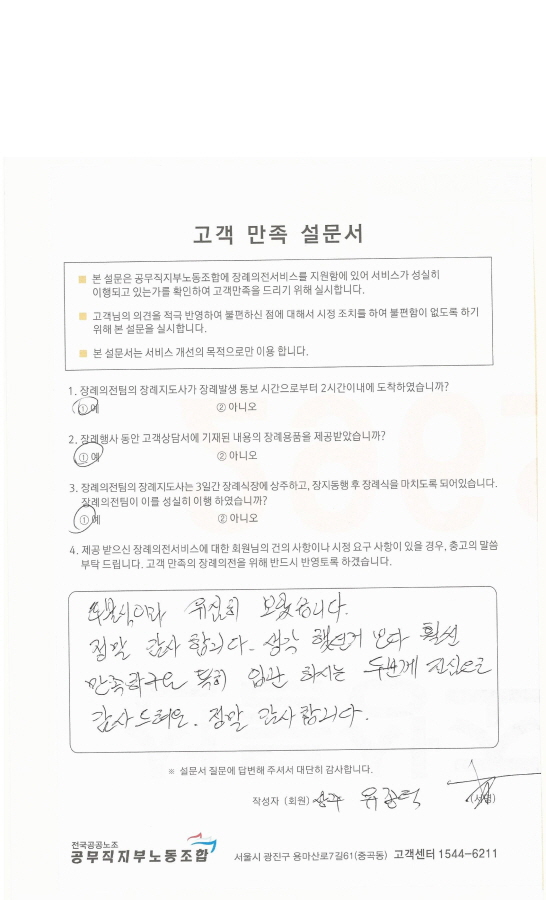 고객 만족 설문서
본 설문은 공무직지부노동조합에 장례의전서비스를 지원함에 있어 서비스가 성실히
이행되고 있는가를 확인하여 고객만족을 드리기 위해 실시합니다.
고객님의 의견을 적극 반영하여 불편하신 점에 대해서 시정 조치를 하여 불편함이 없도록 하기
위해 본 설문을 실시합니다.
본 설문서는 서비스 개선의 목적으로만 이용 합니다.
1. 장례의전팀의 장례지도사가 장례발생 통보 시간으로부터 2시간이내에 도착하였습니까?
① 예 ② 아니오
2. 장례행사 동안 고객상담서에 기재된 내용의 장례용품을 제공받았습니까?
① 예 ② 아니오
3. 장례의전팀의 장례지도사는 3일간 장례식장에 상주하고, 장지동행 후 장례식을 마치도록 되어있습니다.
장례의전팀이 이를 성실히 이행 하였습니까?
① 예 ② 아니오
4. 제공 받으신 장례의전서비스에 대한 회원님의 건의 사항이나 시정 요구 사항이 있을 경우, 충고의 말씀
부탁 드립니다. 고객 만족의 장례의전을 위해 반드시 반영토록 하겠습니다.
보았습니다.
정말 감사 합니다. 생각 했던거 보다 훨신
만족하구요 특히 입관 하시는 두분께 진심으로
감사드려요. 정말 감사합니다.
※ 설문서 질문에 답변해 주셔서 대단히 감사합니다.
작성자 (회원) 상주 유광덕 (서명)
전국공공노조
공무직지부노동조합 서울시 광진구 용마산로7길61(중곡동) 고객센터 1544-6211